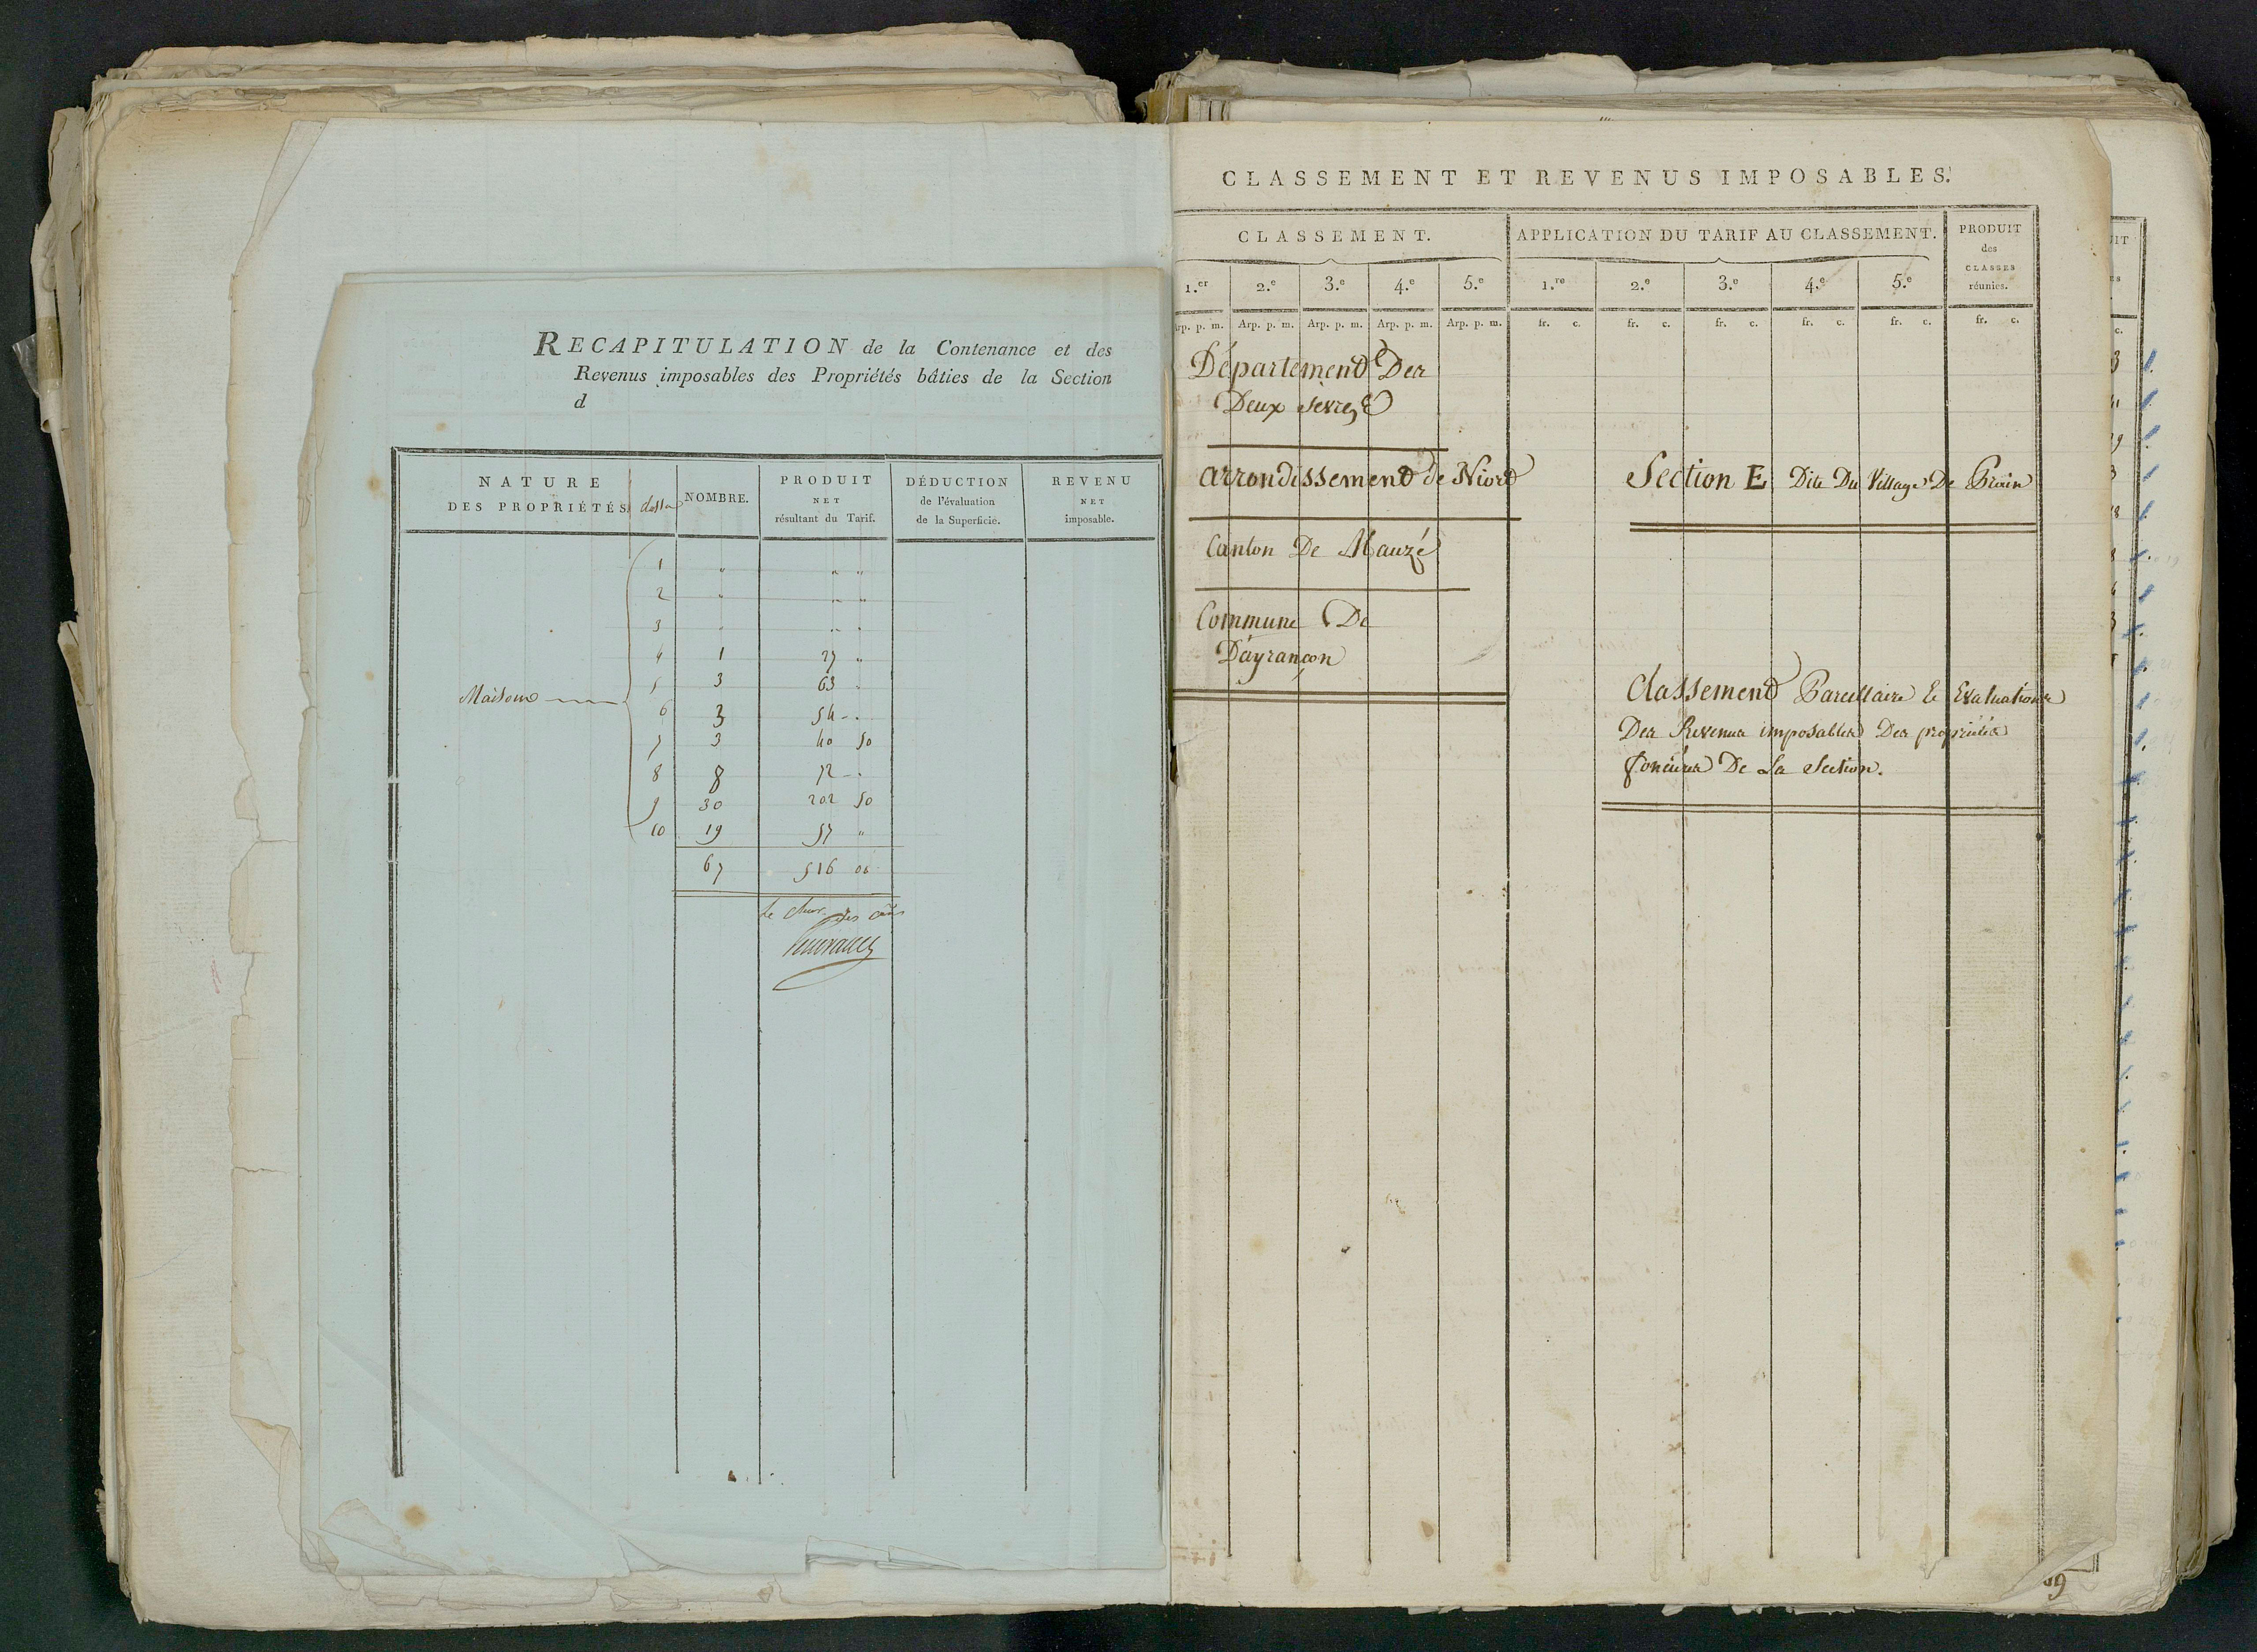 RECAPITULATION de la Contenance et des
Revenus imposables des Propriétés bâties de la Section
d
NATURE DES PROPRIÉTÉS classes NOMBRE. PRODUIT NET résultant du Tarif. DÉDUCTION de l'évaluation de la Superficie. REVENU NET imposable.
1 " " "
2 " " "
3 " " "
4 1 27 "
5 3 63 "
Maisons
6 3 54 - .
7 3 40 50
8 8 72 - .
9 30 202 50
10 19 57 "
67 516 00
le
CLASSEMENT ET REVENUS IMPOSABLES.
CLASSEMENT. APPLICATION DU TARIF AU CLASSEMENT. PRODUIT des CLASSES réunies.
1.er 2.e 3.e 4.e 5.e 1.re 2.e 3.e 4.e 5.e
Arp. p. m. Arp. p. m. Arp. p. m. Arp. p. m. Arp. p. m. fr. c. fr. c. fr. c. fr. c. fr. c. fr. c.
Département Des
Deux Sevres
arrondissement de Niort
Canton De Mauzé
Commune De
Dayrançon
Section E Dite Du Village De
Classement Parcellaire Et Evaluations
Des Revenus imposables Des propriétés
foncieres De La Section.